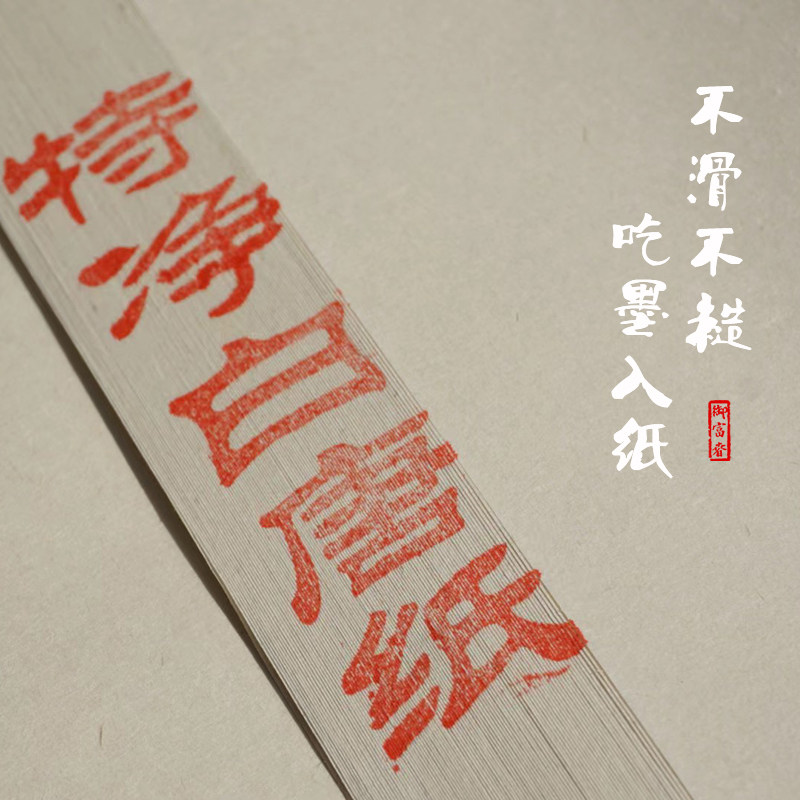 特净白唐纸
不滑不糙
吃墨入纸
御富春